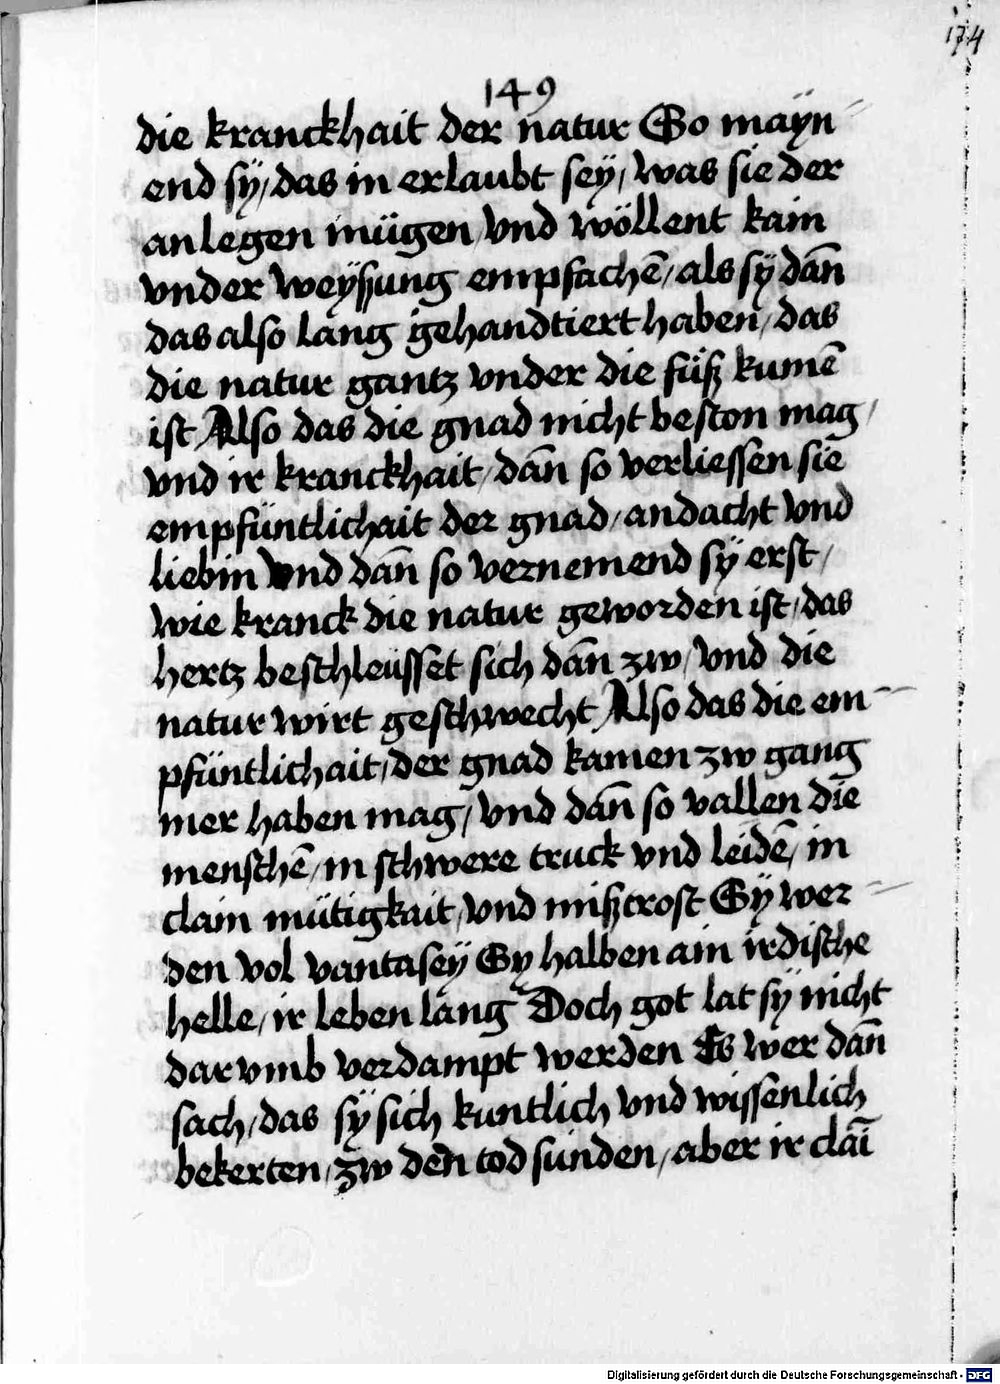 174
149
die kranckhait der natur So maÿn
end sÿ/ das in erlaubt seÿ/ was sie der
an legen mügen vnd wöllent kain
vnder weÿssung empfachē/ als sÿ dān
das also lang gehandtiert haben/ das
die natur gantz vnder die füß kumē
ist Also das die gnad nicht beston mag/
vnd ir kranckhait/ dān so verliessen sie
empfüntlichait der gnad/ andacht vnd
liebin vnd dān so vernemend sÿ erst/
wie kranck die natur geworden ist/ das
hertz beschleüsset sich dān zw/ vnd die
natur wirt geschwecht Also das die em
pfüntlichait/ der gnad kamen zw gang
mer haben mag/ vnd dān so vallen die
menschē/ in schwere truck vnd leidē/ in
clain mütigkait/ vnd mißtrost Sÿ wer
den vol vantaseÿ Sy halben ain irdische
helle/ ir leben lang Doch got lat sÿ nicht
dar vmb verdampt werden Es wer dān
sach/ das sÿ sich kuntlich vnd wissenlich
bekerten/ zw den tod sünden/ aber ir clai
Digitalisierung gefördert durch die Deutsche Forschungsgemeinschaft - DFG